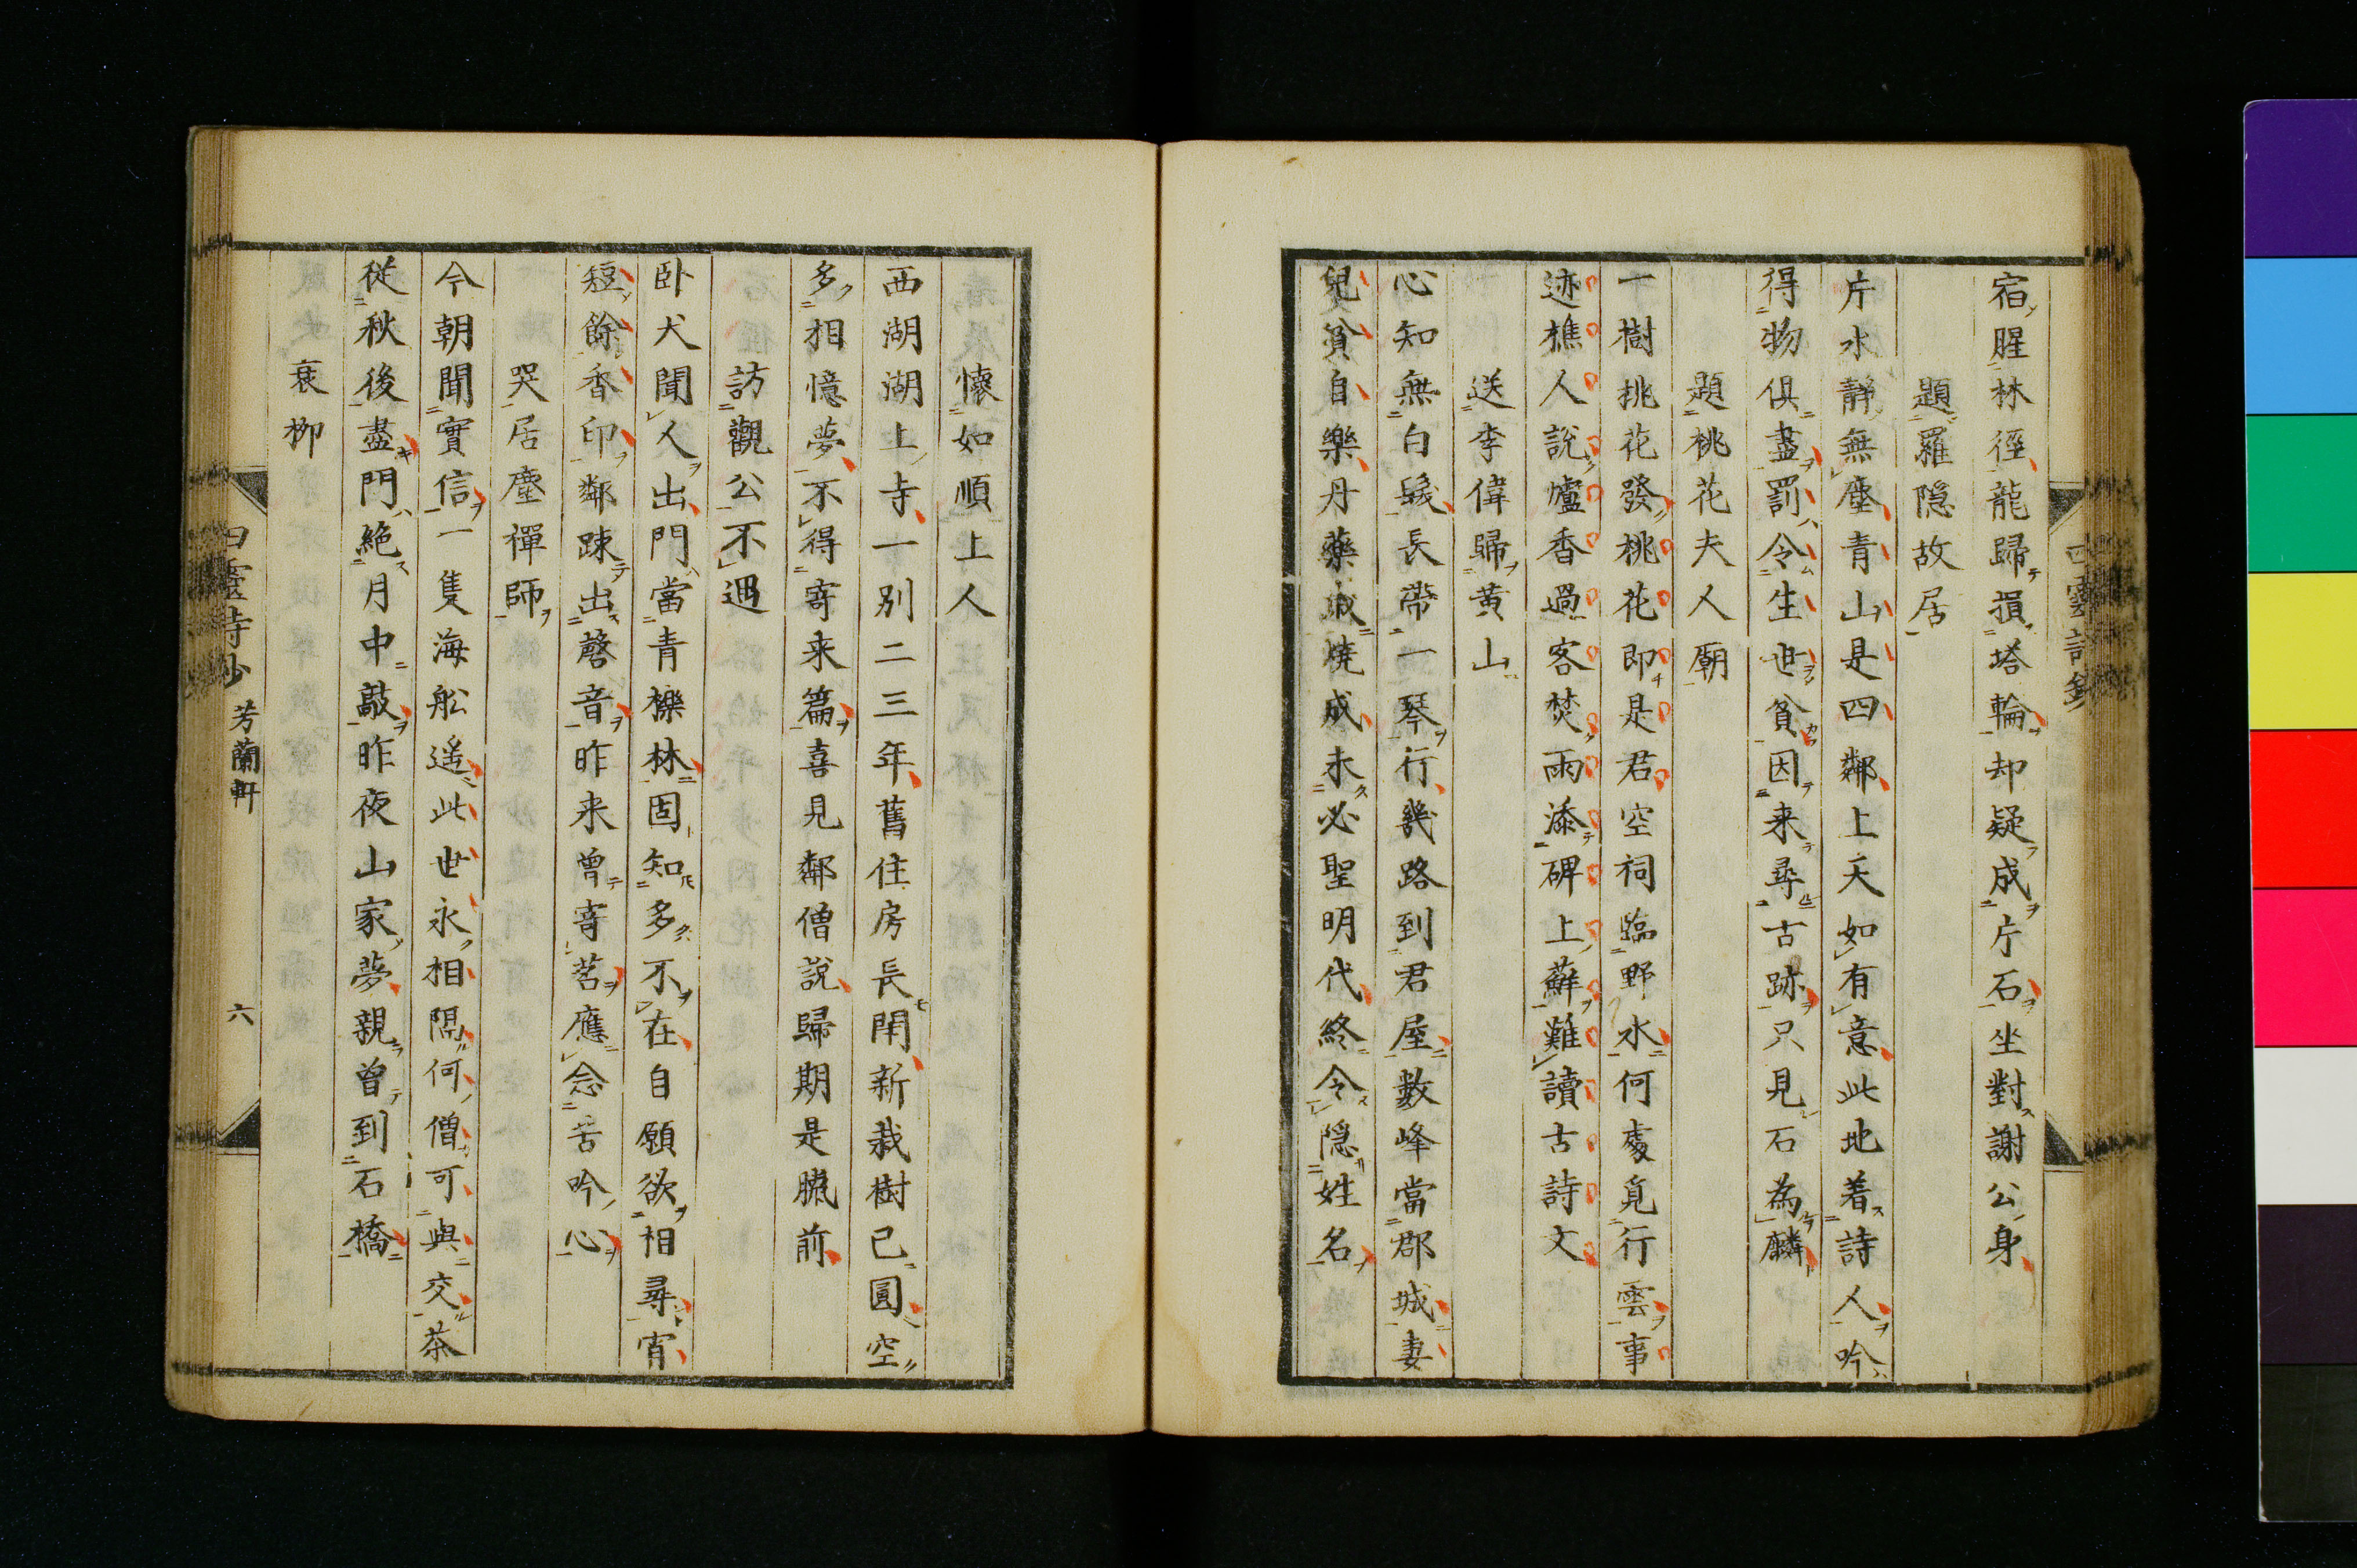 宿腥林徑龍歸損塔輪却疑成片石坐對謝公身
題羅隠故居
片水靜無塵青山是四鄰上天如有意此地着詩人吟
得物俱盡罰令生世貧因来尋古跡只見石為麟
題桃花夫人廟
一樹桃花發桃花即是君空祠臨野水何處覓行雲事
迹樵人說爐香過客焚雨添碑上蘚難讀古詩文
送李偉歸黄山
心知無白髮長帶一琴行幾路到君屋數峰當郡城妻
兒貧自樂丹藥燒成未必聖明代終令隠姓名
懷如順上人
西湖湖上寺一別二三年舊住房長閈新栽樹已圓空
多相憶夢不得寄来篇喜見鄰僧說歸期是臘前
訪觀公不遇
卧犬聞人出門當青櫟林固知多不在自願欲相尋宵
短餘香印鄰踈出磬音昨来曾寄茗應念苦吟心
哭居塵禪師
今朝聞實信一隻海船遥此世永相隔何僧可與交茶
從秋後盡門絶月中敲昨夜山家夢親曾到石橋
衰柳
芳蘭軒
六